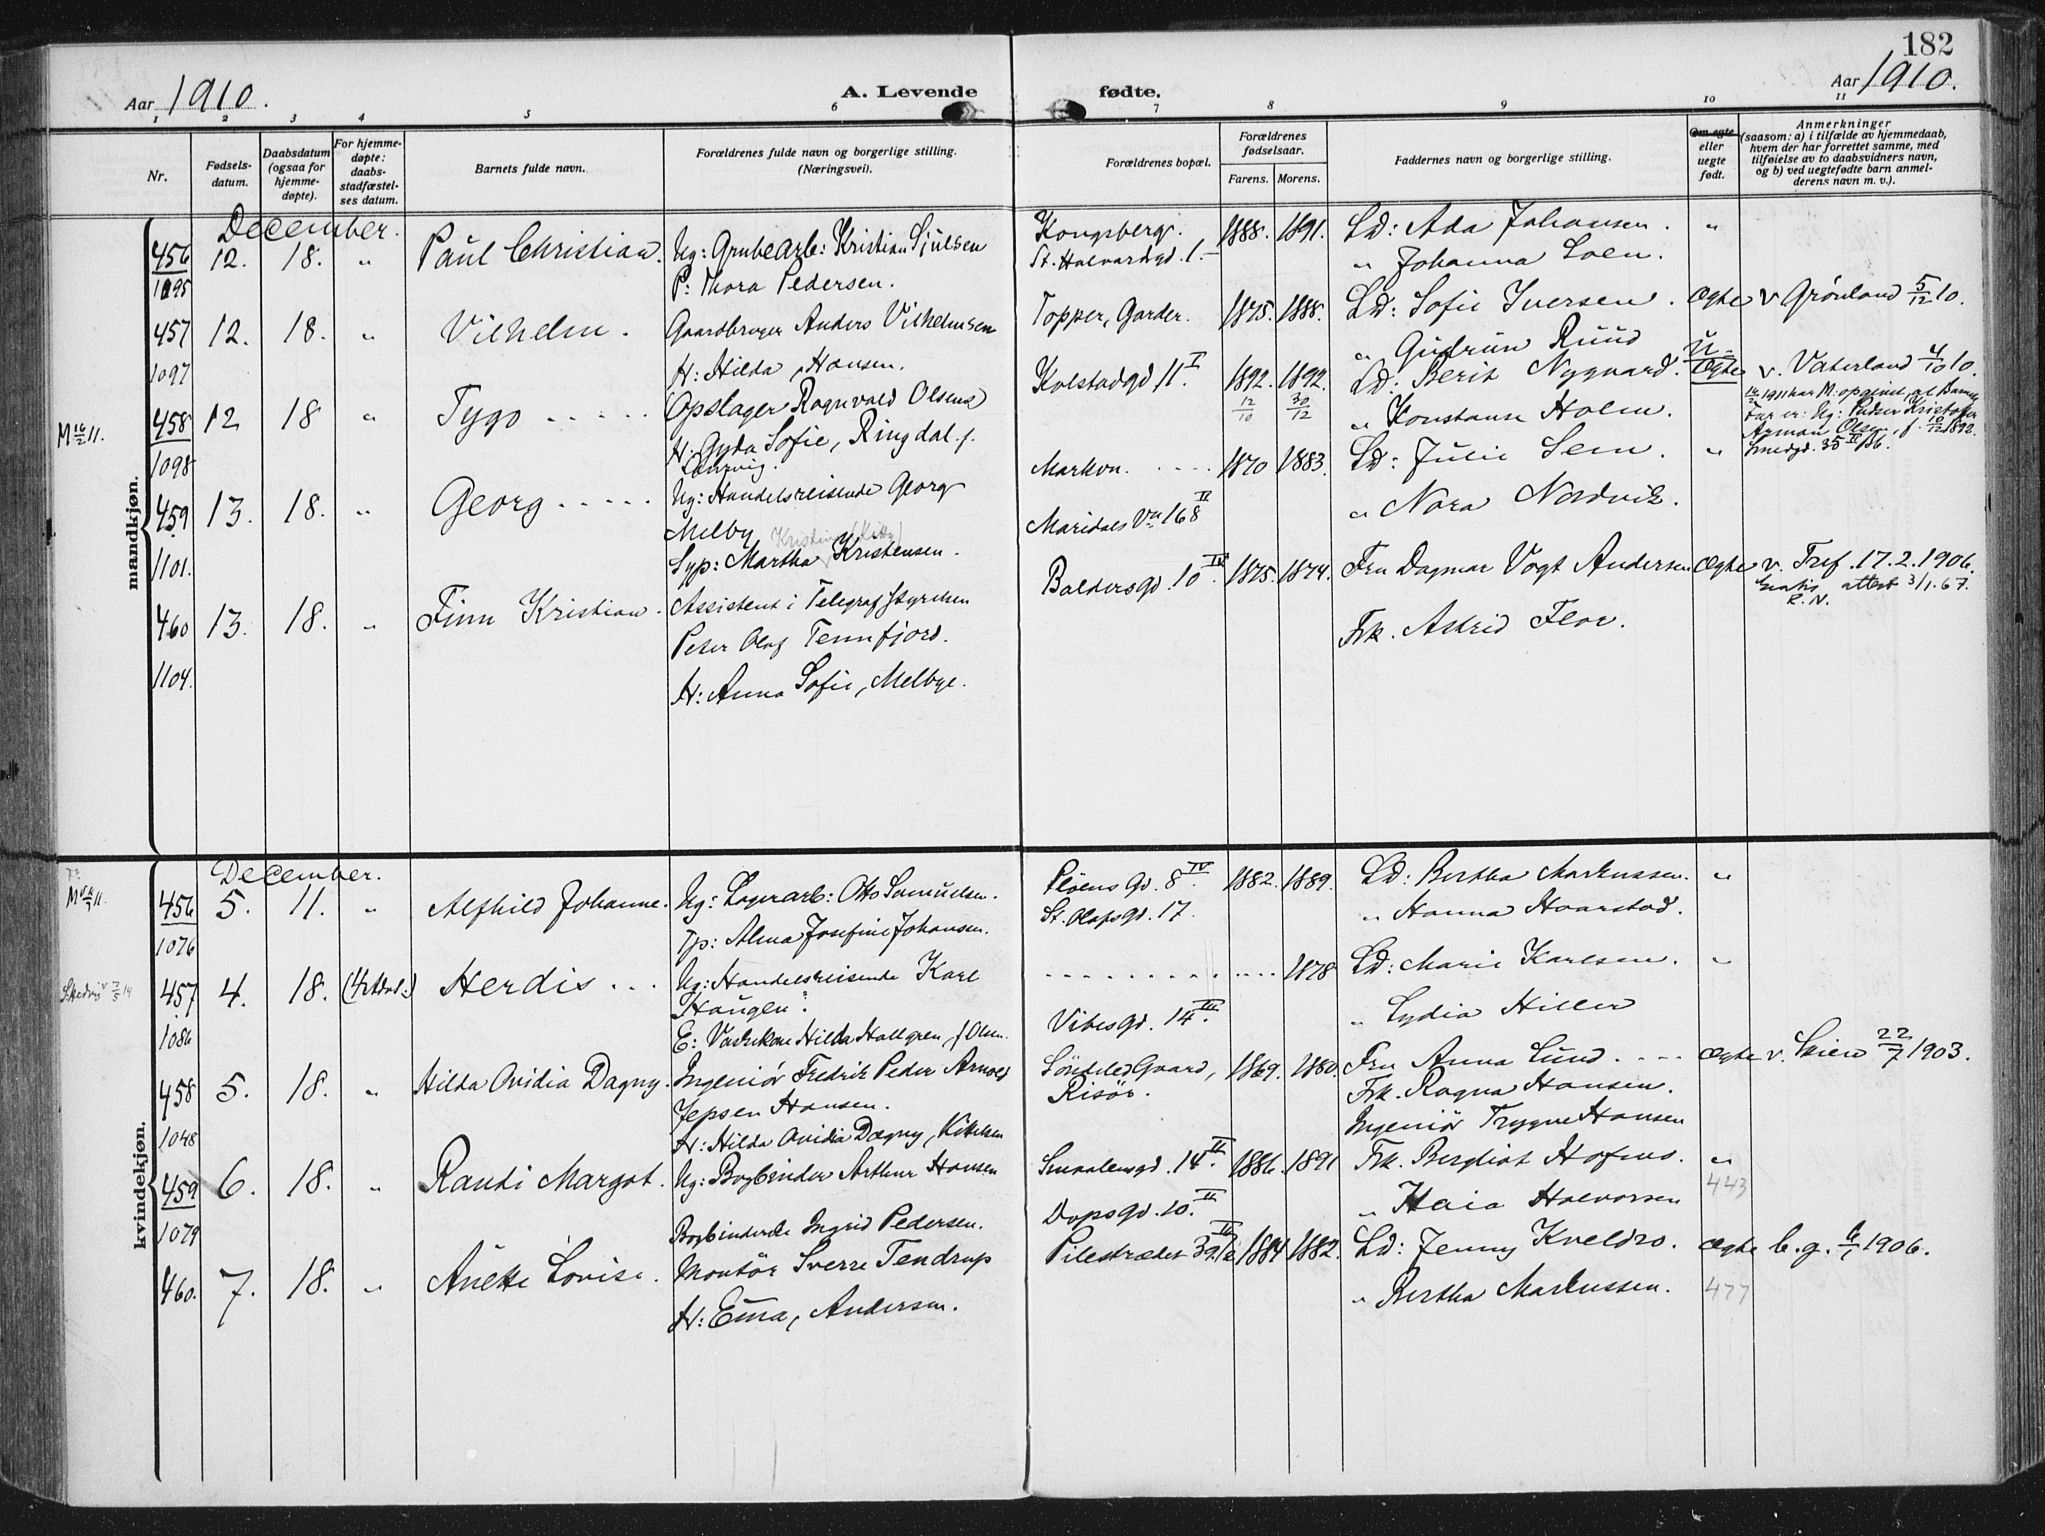 182
Aar 1910.
A. Levende fødte.
Aar 1910.
1 2 3 4 5 6 7 8 9 10 11
Nr.
Fødsels-
datum.
Daabsdatum
(ogsaa for
hjemme-
døpte).
For hjemme-
døpte:
daabs-
stadfæstel-
ses datum.
Barnets fulde navn.
Forældrenes fulde navn og borgerlige stilling.
(Næringsvei).
Forældrenes bopæl.
Forældrenes
fødselsaar.
Farens. Morens.
Faddernes navn og borgerlige stilling.
Om egte
eller
uegte
født.
Anmerkninger
(saasom: a) i tilfælde av hjemmedaab,
hvem der har forrettet samme, med
tilføielse av to daabsvidners navn,
og b) ved uegtefødte barn anmel-
derens navn m. v.).
mandkjøn.
December.
456 12. 18. „ Paul Christian. Ug: Grubearb: Kristian Sjulsen Kongsberg. 1888. 1891. Ld: Ada Johansen. „
1095 P: Thora Pedersen. St. Halvardsgd. 1. „ Johanna Loen.
457 12. 18. „ Vilhelm. Gaardbruger Anders Vilhelmsen Topper, Garder. 1875. 1888. Ld: Sofie Iversen. Ægte v. Grønland 5/12 10.
1097 H: Hilda, Hansen. „ Gudrun Ruud
M 16/2 11. 458 12 18 „ Tygo Opslager Ragnvald Olsen Kolstadgd 11 I. 1892. 1892. Ld: Berit Nygaard. U- Ægte v. Vaterland 4/10 10.
1098 H. Gyda Sofie, Ringdal f. 12/10 30/12 „ Konstanse Holm.
16/2 1911 har M. opgivet, at Barnets
Far er: Ug: Pudser Kristofer
Arman Olsen, f. 10/12 1892.
Smedgd. 35 II Bb.
459 13. 18. „ Georg Ug: Handelsreisende Georg Markvn. 1870 1883. Ld: Julie Sem. „
1101. Melby Maridals Vn 168 II „ Nora Nordvik.
Syp: Martha Kristensen.
460 13. 18. „ Finn Kristian. Assistent i Telegrafstyrelsen Baldersgd. 10 IV. 1875. 1874. Fru Dagmar Vogt Andersen Ægte v. Tref. 17.2.1906.
1104. Peter Olaf Tennfjord. Frk. Astrid Flor. Gratis attest 3/1.67.
R.N.
H: Anna Sofie, Melbye.
kvindekjøn.
December.
456 5. 11. „ Alfhild Johanne. Ug: Lagerarb: Otto Samuelsen. Pløens Gd. 8 IV. 1882. 1889. Ld: Bertha Markussen. „
1076 Tp: Alma Josefine Johansen. St. Olafsgd. 17. „ Hanna Haarstad.
457 4. 18. Herdis Ug: Handelsreisende Karl 1878 Ld: Marie Karlsen. „
1086 Haugen. Vibesgd. 14 III. „ Lydia Hiller
E: Vaskekone Hilda Hallgren, f. Olsen.
458 5. 18. „ Hilda Ovidia Dagny. Ingeniør Fredrik Peder Arnold Søndeled Gaard, 1869. 1880. Fru Anna Lund. Ægte v. Skien 22/7 1903.
1048 Jepsen Hansen. Risør. Frk. Ragna Hansen.
H: Hilda Ovidia Dagny, Kittelsen Ingeniør Trygve Hansen
459 6. 18. „ Randi Margot. Ug: Bogbinder Arthur Hansen Smaalensgd. 14 II. 1886. 1891 Frk. Bergliot Hofnes. „
1079 Bogbinderske Ingrid Pedersen. Dopsgd. 10. II „ Haia Halvorsen 443
460. 7. 18. „ Anette Lovise. Montør Sverre Tendrup Pilestrædet 39 1884 1882. Ld: Jenny Kveldro. Ægte b.g. 6/1 1906.
H: Ema, Andersen. „ Bertha Markussen. 477